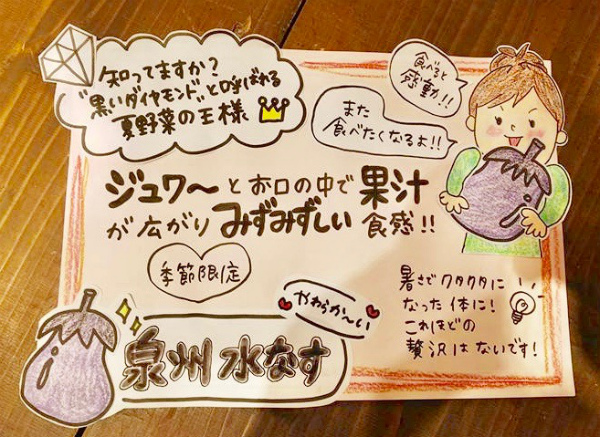 知ってますか?
"黒いダイヤモンド"と呼ばれる
夏野菜の王様
食べると
感動!!
また
食べたくなるよ!!
ジュワ〜とお口の中で果汁
が広がりみずみずしい食感!!
季節限定
やわらか〜い
泉州水なす
暑さでクタクタに
なった体に!
これほどの
贅沢はないです!